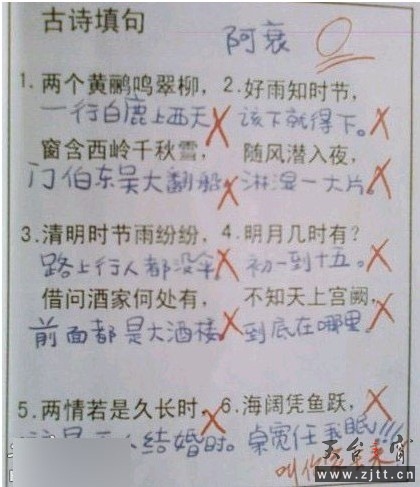 古诗填句
阿衰
0
1.两个黄鹂鸣翠柳，2.好雨知时节，
一行白鹿上西天 该下就得下。
窗含西岭千秋雪， 随风潜入夜，
门伯东吴大翻船 淋湿一大片。
3.清明时节雨纷纷，4.明月几时有？
路上行人都没伞 初一到十五。
借问酒家何处有， 不知天上宫阙，
前面都是大酒楼 到底在哪里
5.两情若是久长时，6.海阔凭鱼跃，
结婚时。桌宽任我眠!!!
叫你
www.zjtt.cn